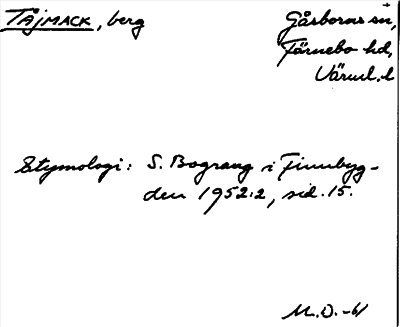 TÅJMACK, berg
Gåsborns sn,
Färnebo hd,
Värml. l
Etymologi: S. Bograng i Finnbyg-
den 1952:2, sid. 15.
M.O.-61